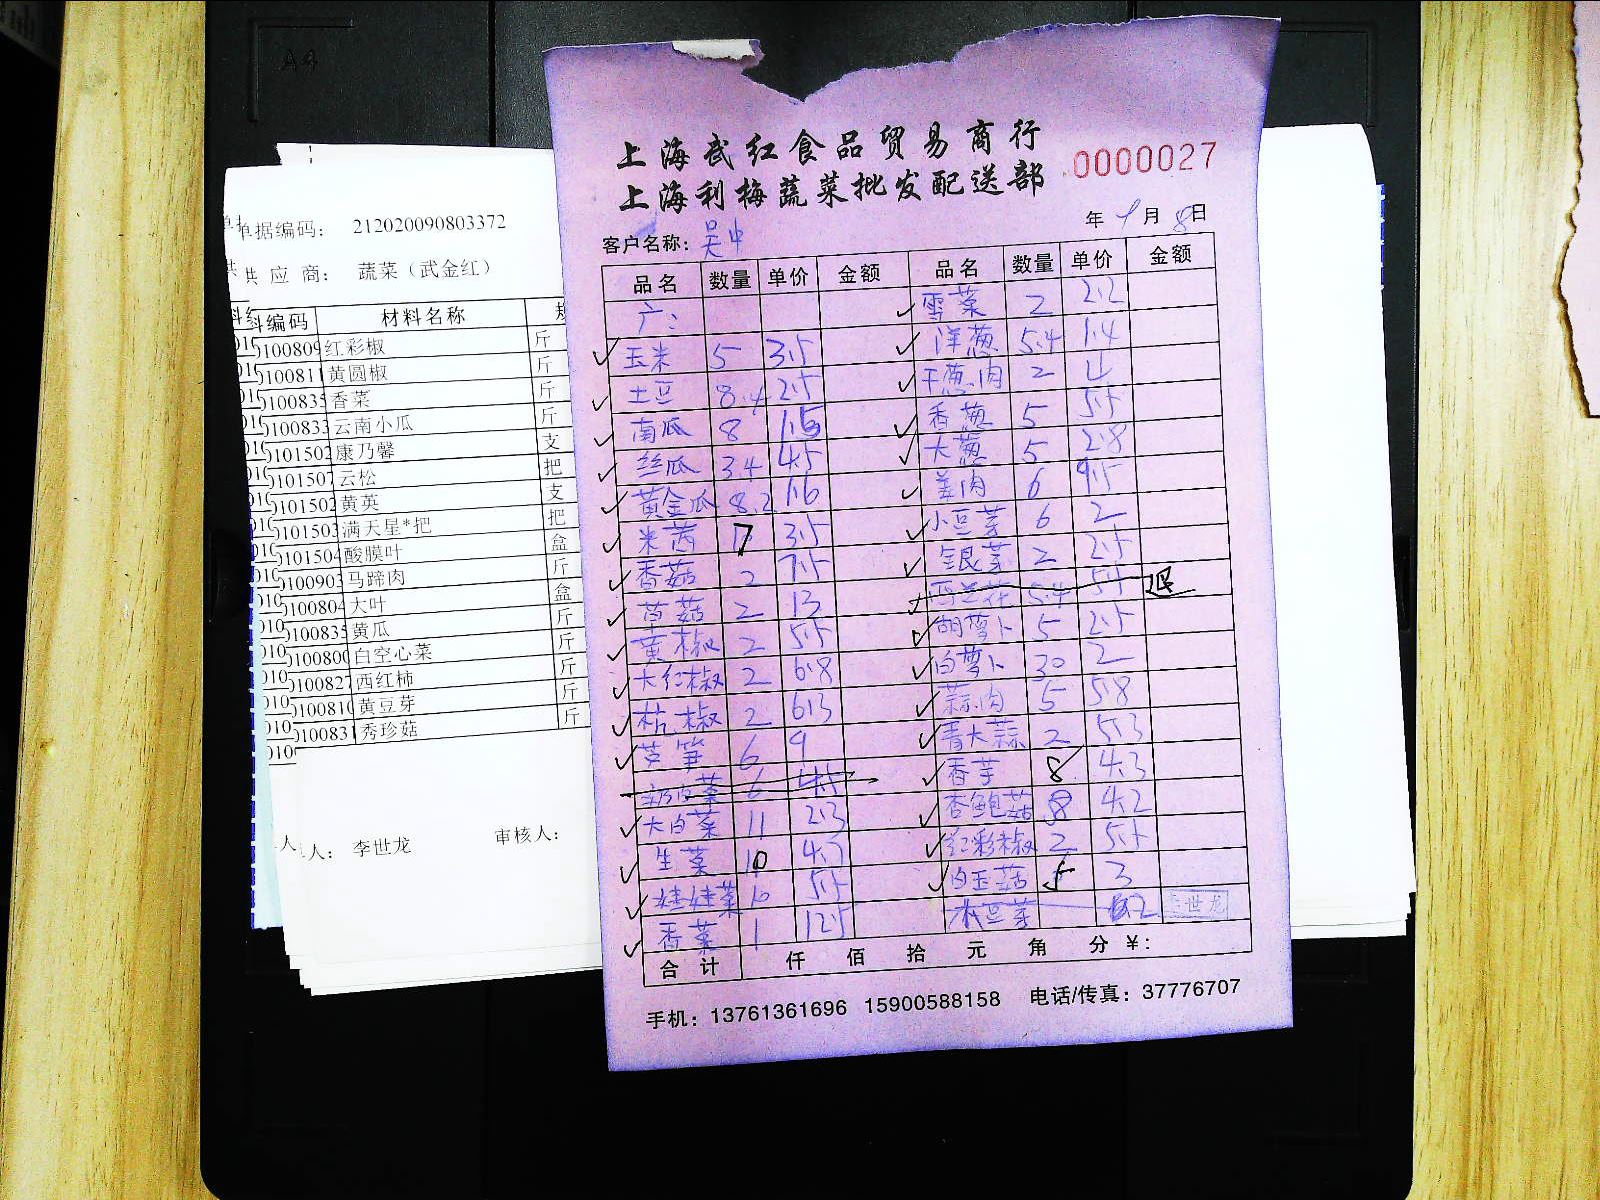 单据编码： 212020090803372
供 应 商： 蔬菜（武金红）
编码 材料名称
0100809 红彩椒 斤
010081 黄圆椒 斤
010083 香菜 斤
010083 云南小瓜 斤
010150 康乃馨 支
010150 云松 把
010150 黄英 支
010150 满天星*把 把
010150 酸膜叶 盒
010090 马蹄肉 斤
010080 大叶 盒
010083 黄瓜 斤
010080 白空心菜 斤
010082 西红柿 斤
010081 黄豆芽 斤
010083 秀珍菇 斤
人： 李世龙 审核人：
上海武红食品贸易商行
上海利梅蔬菜批发配送部
0000027
年 9月 8日
客户名称： 吴中
品名 数量 单价 金额 品名 数量 单价 金额
产： 雪菜 2 2.2
玉米 5 3.5 洋葱 5.4 1.4
土豆 8.4 2.5 干葱肉 2 4
南瓜 8 香葱 5 5.5
丝瓜 3.4 4.5 大葱 5 2.8
黄金瓜 8.2 1.6 姜肉 6 9.5
米苋 3.5 小豆芽 6 2
香菇 2 7.5 银芽 2 2.5
草菇 2 13 西兰花 5.4 5.5 退
黄椒 2 5.5 胡萝卜 5 2.5
大红椒 2 6.8 白萝卜 30 2
杭椒 2 6.3 蒜肉 5 5.8
芦笋 6 9 青大蒜 2 5.3
奶白菜 6 4.5 香芋 8 4.3
大白菜 11 2.3 杏鲍菇 8 4.2
生菜 10 4.7 红彩椒 2 5.5
娃娃菜 10 5.5 白玉菇 5 3
香菜 1 12.5 豆芽 李世龙
合 计 仟 佰 拾 元 角 分 ¥：
手机：13761361696 15900588158 电话/传真：37776707